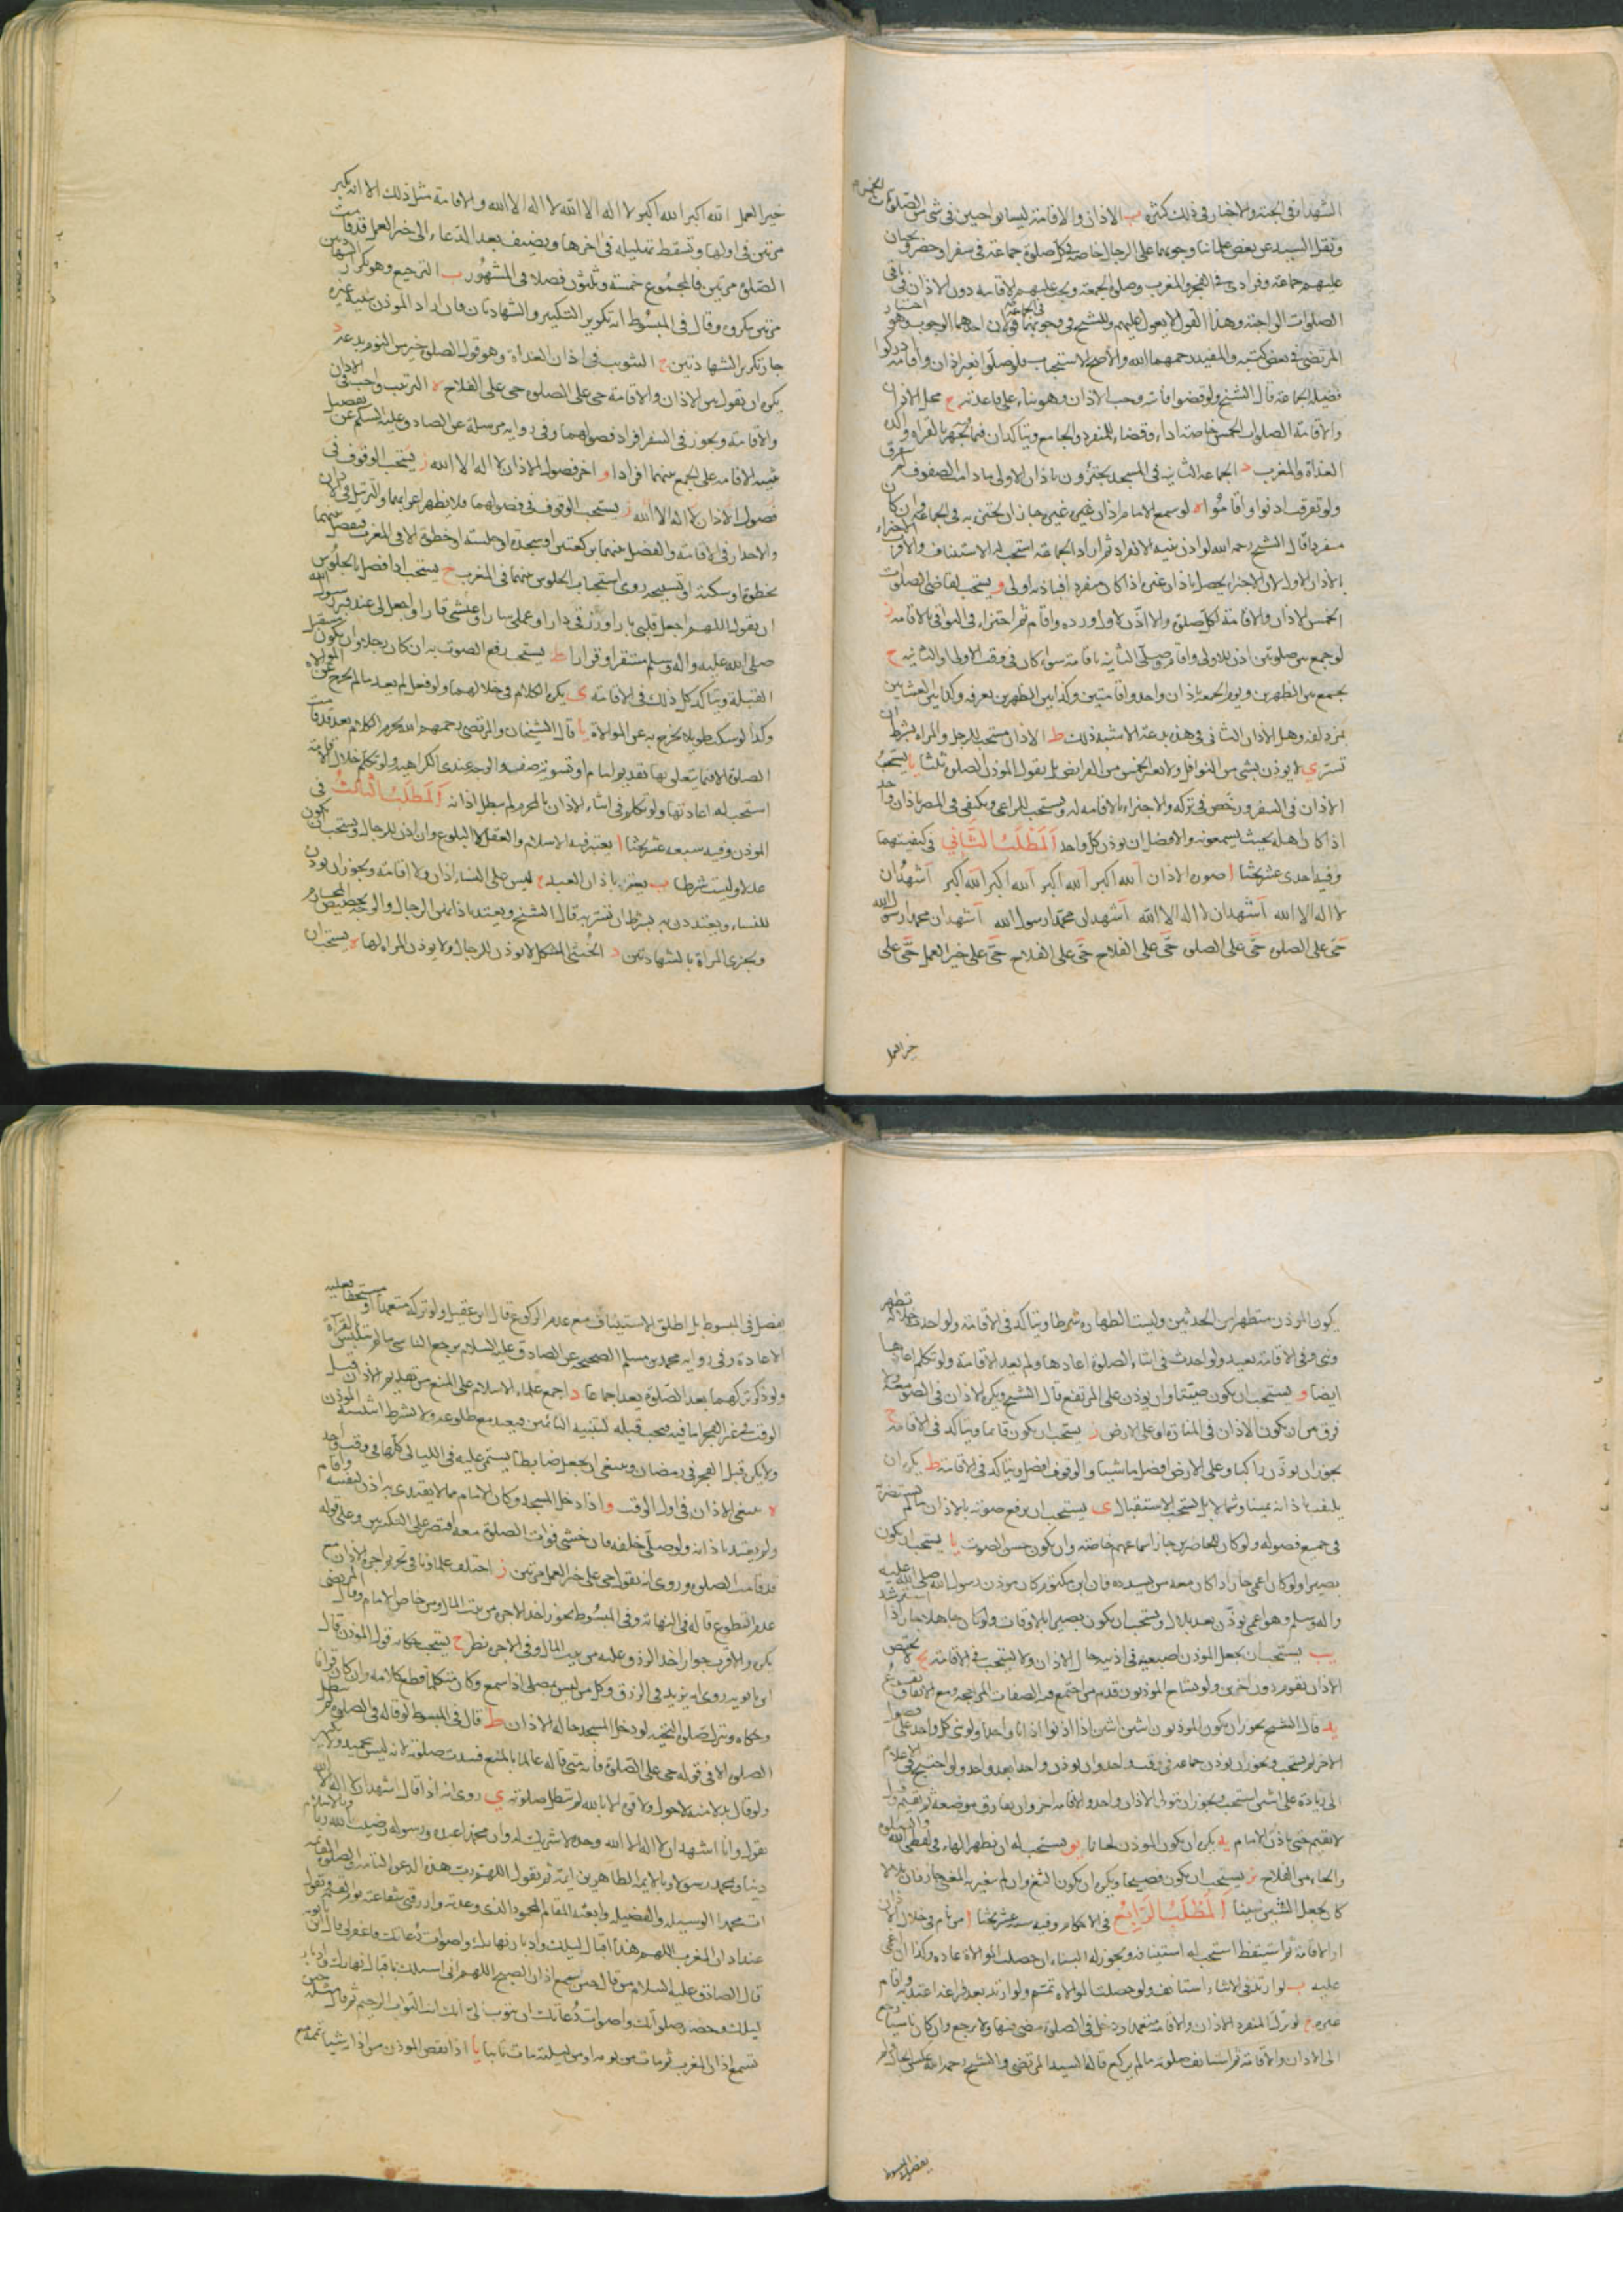 الشهداء في الجنة والاخبار في ذلك كثيرة ب الاذان والاقامة ليسا بواجبين في شئ من الصلوات الخمس
ونقل السيد عن بعض علمائنا وجوبهما على الرجال خاصة في كل صلوة جماعة في سفر او حضر ويجبان
عليهم جماعة وفرادى في الفجر والمغرب وصلوة الجمعة ويجب عليهم الاقامة دون الاذان في باقي
الصلوات الواجبة وهذا القول لا يعول عليهم وللشيخ في وجوبهما في الجماعة قولان احدهما الوجوب وهو اختيار
المرتضى في بعض كتبه والمفيد رحمهما الله والاصح الاستحباب فلو صلوا بغير اذان واقامة ادركوا
فضيلة الجماعة قال الشيخ ولو قضوا فائتة وجب الاذان وهو بناء على قاعدته ج محل الاذان
والاقامة الصلوات الخمس خاصة اداء وقضاء للمنفرد والجامع ويتاكدان فيما يجهر بالقراءة واكده
الغداة والمغرب د الجماعة الثانية في المسجد يجتزؤن باذان الاولى ما دامت الصفوف لم تتفرق
ولو تفرقت اذنوا واقاموا ه لو سمع الامام اذان غيره جاز ان يجتزئ به في الجماعة وان كان
منفردا قال الشيخ رحمه الله لو اذن بنية الانفراد ثم اراد الجماعة استحب له الاستيناف والاقرب الاجتزاء
بالاذان الاول لان الاجتزاء يحصل باذان غيره اذا كان منفردا فباذانه اولى و يستحب لقاضي الصلوات
الخمس الاذان والاقامة لكل صلوة والا اذن لاول ورده واقام ثم اجتزاء في البواقي بالاقامة ز
لو جمع بين صلوتين اذن للاولى واقام وصلى الثانية باقامة سواء كان في وقت الاولى او الثانية ح
يجمع بين الظهرين ويوم الجمعة باذان واحد واقامتين وكذا بين الظهرين بعرفة وكذا بين العشائين
بمزدلفة وهل الاذان الثاني في هذه بدعة الاشبه ذلك ط الاذان مستحب للرجل والمراة بشرط ان
تستر ي لا يؤذن بشئ من النوافل ولا لغير الخمس من الفرائض بل يقول المؤذن الصلوة ثلثا يا يستحب
الاذان في السفر ورخص في تركه والاجتزاء بالاقامة له ويستحب للراعي ويكفي في المصر باذان واحد
اذا كان اهله بحيث يسمعونه والافضل ان يؤذن كل واحد المطلب الثاني في كيفيتهما
وفيه احدى عشر بحثا ا صورة الاذان الله اكبر الله اكبر الله اكبر الله اكبر اشهد ان
لا اله الا الله اشهد ان لا اله الا الله اشهد ان محمدا رسول الله اشهد ان محمدا رسول الله
حي على الصلوة حي على الصلوة حي على الفلاح حي على الفلاح حي على خير العمل حي على
خير العمل
خير العمل الله اكبر الله اكبر لا اله الا الله لا اله الا الله والاقامة مثل ذلك الا انه يكبر
مرتين في اولها وتسقط تهليلة في اخرها ويضيف بعد الدعاء الى خير العمل قد قامت
الصلوة مرتين فالمجموع خمسة وثلثون فصلا في المشهور ب الترجيع وهو تكرار الشهادتين
مرتين مكروه وقال في المبسوط انه تكرير التكبير والشهادتان فان اراد المؤذن تنبيه غيره
جاز تكرير الشهادتين ج التثويب في اذان الغداة وهو قول الصلوة خير من النوم بدعة د
يكره ان يقول بين الاذان والاقامة حي على الصلوة حي على الفلاح ه الترتيب واجب في الاذان
والاقامة ويجوز في السفر افراد فصولهما وفي رواية مرسلة عن الصادق عليه السلام عن تفضيل
تثنية الاقامة على الجمع بينهما افرادا و اخر فصول الاذان لا اله الا الله ز يستحب الوقوف في
فصول الاذان لا اله الا الله ز يستحب الوقوف في فصولهما فلا يظهر اعرابهما والترتيل في الاذان
والاحدار في الاقامة والفصل بينهما بركعتين او سجدة او جلسة او خطوة الا في المغرب فيفصل بينهما
بخطوة او سكتة او تسبيحة وروى استحباب الجلوس بينهما في المغرب ح يستحب اذا فصل بالجلوس
ان يقول اللهم اجعل قلبي بارا ورزقي دارا وعملي سارا وعيشي قارا واجعل لي عند قبر رسول الله
صلى الله عليه واله وسلم مستقرا وقرارا ط يستحب رفع الصوت به ان كان رجلا وان يكون مستقبل
القبلة ويتاكد كل ذلك في الاقامة ي يكره الكلام في خلالهما ولو فعل لم يعد ما لم يخرج عن الموالاة
وكذا لو سكت طويلا يخرج به عن الموالاة يا قال الشيخان والمرتضى رحمهم الله يحرم الكلام بعد قد قامت
الصلوة الا فيما يتعلق بها بتقديم امام او تسوية صف والوجه عندي الكراهية ولو تكلم خلال الاقامة
استحب له اعادتها ولو تكلم في اثناء الاذان بالمحرم لم يبطل اذانه المطلب الثالث في
المؤذن وفيه سبعة عشر بحثا ا يعتبر فيه الاسلام والعقل لا البلوغ وان اذن للرجال ويستحب ان يكون
عدلا وليست شرطا ب يعتبر باذان العبد ج ليس على النساء اذان ولا اقامة ويجوز ان يؤذن
للنساء ويعتددن به بشرط ان تستر به قال الشيخ ويعتد باذانهن الرجال والوجه تخصيص المحارم
ويجزئ المراة بالشهادتين د الخنثى المشكل لا يؤذن للرجال ولا يؤذن المراة لها ه يستحب ان
يكون المؤذن متطهرا من الحدثين وليست الطهارة شرطا ويتاكد في الاقامة ولو احدث خلاله تطهر
وبنى وفي الاقامة يعيد ولو احدث في اثناء الصلوة اعادها ولم يعد الاقامة ولو تكلم اعادها
ايضا و يستحب ان يكون صيتا وان يؤذن على المرتفع قال الشيخ ويكره الاذان في الصومعة ولا
فرق بين ان يكون الاذان في المنارة او على الارض ز يستحب ان يكون قائما ويتاكد في الاقامة ح
يجوز ان يؤذن راكبا وعلى الارض افضل وماشيا والوقوف افضل ويتاكد في الاقامة ط يكره ان
يلتفت باذانه يمينا وشمالا بل يستحب الاستقبال ي يستحب ان يرفع صوته بالاذان ما لم يستضر به
في جميع فصوله ولو كان للحاضرين جاز اسماعهم خاصة وان يكون حسن الصوت يا يستحب ان يكون
بصيرا ولو كان اعمى جاز اذا كان معه من يسدده فان ابن مكتوم كان مؤذن رسول الله صلى الله عليه
واله وسلم وهو اعمى يؤذن بعد بلال ويستحب ان يكون بصيرا بالاوقات ولو كان جاهلا جاز اذا استرشد
يب يستحب ان يجعل المؤذن اصبعيه في اذنيه حال الاذان ولا يستحب في الاقامة يج لا يختص
الاذان بقوم دون اخرين ولو تشاح المؤذنون قدم من اجتمع فيه الصفات المرجحة ومع الاتفاق يقرع
يد قال الشيخ يجوز ان يكون المؤذنون اثنين اثنين اذا اذنوا اذانا واحدا ولو بنى كل واحد على فصول
الاخر لم يستحب ويجوز ان يؤذن جماعة في وقت واحد وان يؤذن واحد بعد واحد ولو احتيج في الاعلام
الى زيادة على اثنين استحب ويجوز ان يتولى الاذان واحد والاقامة اخر وان يفارق موضعه ثم يقيم ولا
يقيم حتى ياذن الامام يه يكره ان يكون المؤذن لحانا يو يستحب له ان يظهر الهاء في لفظي الله والصلوة
والحاء من الفلاح يز يستحب ان يكون فصيحا ويكره ان يكون الثغ وان لم يغير به المعنى جاز فان بلالا
كان يجعل الشين سينا المطلب الرابع في الاحكام وفيه ستة عشر بحثا ا من نام في خلال الاذان
او الاقامة ثم استيقظ استحب له استينافه ويجوز له البناء ان حصلت الموالاة عادة وكذا ان اغمي
عليه ب لو ارتد في الاثناء استانف ولو حصلت الموالاة تمم ولو ارتد بعد فراغه اعتد به واقام
غيره ج لو ترك المنفرد الاذان والاقامة متعمدا ودخل في الصلوة مضى فيها ولا يرجع وان كان ناسيا رجع
الى الاذان والاقامة ثم استانف صلوته ما لم يركع قاله السيد المرتضى والشيخ رحمه الله عكس الحال ولم
يفصل في المبسوط
يفصل في المبسوط بل اطلق الاستيناف مع عدم الركوع قال ابن عقيل ولو تركه متعمدا او مستخفا فعليه
الاعادة وفي رواية محمد بن مسلم الصحيحة عن الصادق عليه السلام يرجع الناسي ما لم يتلبس بالقراءة
ولو ذكر تركهما بعد الصلوة لم يعد اجماعا د اجمع علماء الاسلام على المنع من تقديم الاذان قبل
الوقت في غير الفجر اما فيه فيحب قبله لتنبيه النائمين فيعيد مع طلوعه ولا يشترط اثنينية المؤذن
ولا يكره قبل الفجر في رمضان وينبغي ان يجعل ضابطا يستمر عليه في الليالي كلها في وقت واحد
ه ينبغي الاذان في اول الوقت و اذا دخل المسجد وكان الامام ممن لا يقتدى به اذن لنفسه واقام
ولم يعتد باذانه ولو صلى خلفه فان خشي فوات الصلوة معه اقتصر على التكبيرتين وعلى قوله
قد قامت الصلوة وروى انه يقول حي على خير العمل مرتين ز اختلف علماؤنا في تحريم اجرة الاذان مع
عدم التطوع قاله في النهاية وفي المبسوط يجوز اخذ الاجرة من بيت المال ومن خاص الامام وقال المرتضى
يكره والاقرب جواز اخذ الرزق عليه من بيت المال وفي الاجرة نظر ح يستحب حكاية قول المؤذن قال
ابن بابويه روى انه يزيد في الرزق وكل من ليس بمصلى اذا سمع وكان متكلما قطع كلامه وان كان قرانا
وحكاه وترك صلوة التحية لو دخل المسجد حالة الاذان ط قال في المبسوط لو قاله في الصلوة لم تبطل
الصلوة الا في قوله حي على الصلوة فانه متى قاله عالما بالمنع فسدت صلوته لانه ليس بتحميد ولا تكبير
ولو قال بدلا منه لا حول ولا قوة الا بالله لم تبطل صلوته ي روى انه اذا قال اشهد ان لا اله الا الله
يقول وانا اشهد ان لا اله الا الله وحده لا شريك له وان محمدا عبده ورسوله رضيت بالله ربا وبالاسلام
دينا وبمحمد رسولا وبالائمة الطاهرين ائمة ثم يقول اللهم رب هذه الدعوة التامة والصلوة القائمة
ات محمدا الوسيلة والفضيلة وابعثه المقام المحمود الذي وعدته وارزقني شفاعته يوم القيمة ويقول
عند اذان المغرب اللهم هذا اقبال ليلك وادبار نهارك واصوات دعاتك فاغفر لي قال ابن بابويه
قال الصادق عليه السلام من قال حين يسمع اذان الصبح اللهم اني اسئلك باقبال نهارك وادبار
ليلك وحضور صلواتك واصوات دعاتك ان تتوب علي انك انت التواب الرحيم ثم قال مثله حين
تسمع اذان المغرب ثم مات من يومه او من ليلته مات تائبا يا اذا نقص المؤذن من اذانه شيئا تممه مع